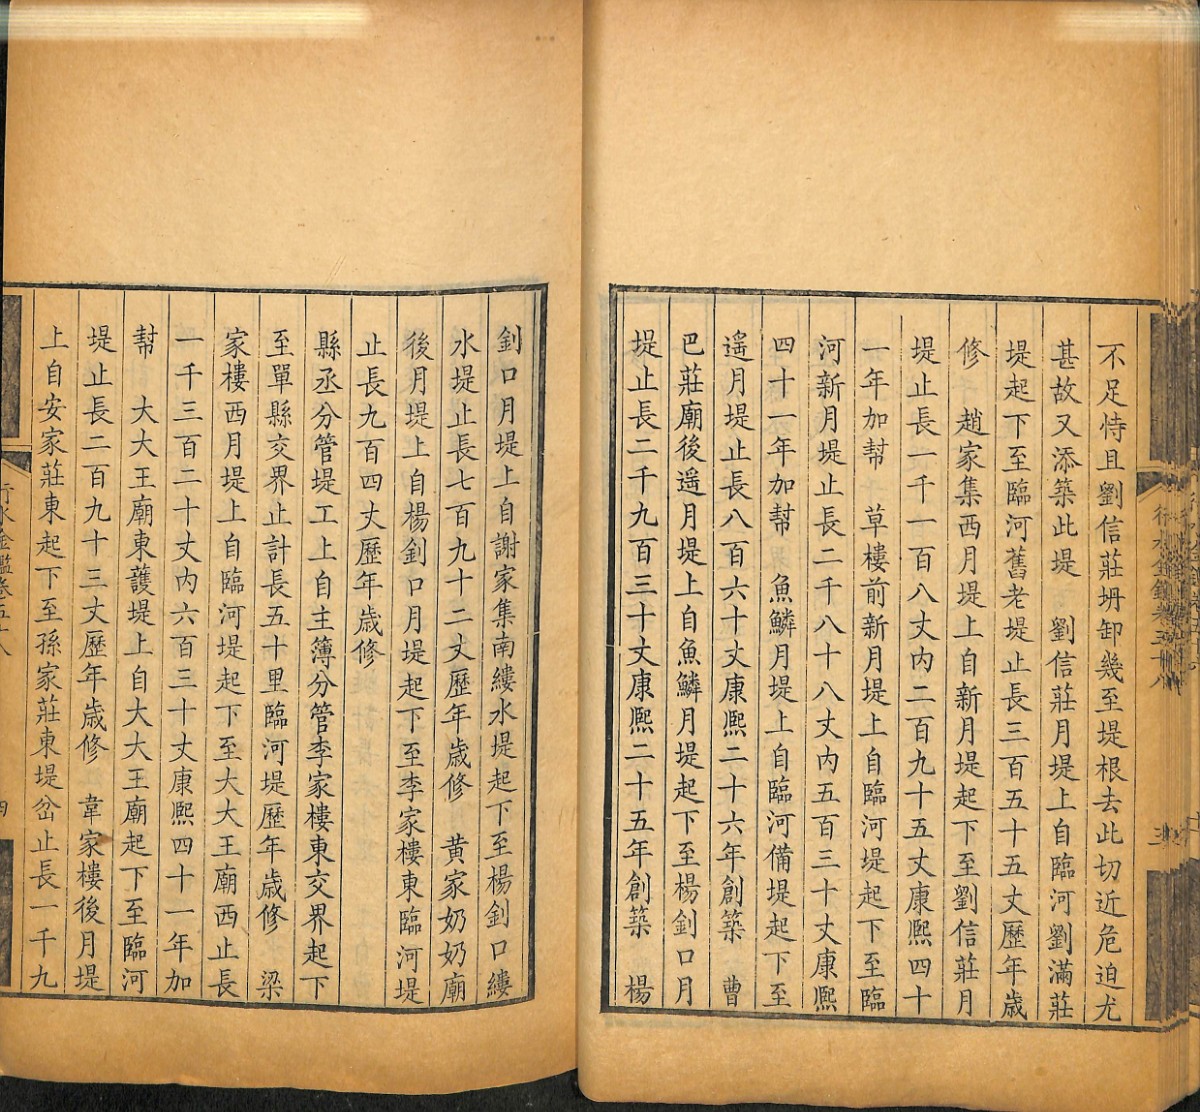 不足恃且劉信莊坍卸幾至堤根去此切近危迫尤
甚故又添築此堤　劉信莊月堤上自臨河劉滿莊
堤起下至臨河舊老堤止長三百五十五丈歷年歲
修　趙家集西月堤上自新月堤起下至劉信莊月
堤止長一千一百八丈內二百九十五丈康熙四十
一年加幫　草樓前新月堤上自臨河堤起下至臨
河新月堤止長二千八十八丈內五百三十丈康熙
四十一年加幫　魚鱗月堤上自臨河備堤起下至
遙月堤止長八百六十丈康熙二十六年創築　曹
巴莊廟後遥月堤上自魚鱗月堤起下至楊釗口月
堤止長二千九百三十丈康熙二十五年創築　楊
釗口月堤上自謝家集南縷水堤起下至楊釗口縷
水堤止長七百九十二丈歷年歲修　黄家奶奶廟
後月堤上自楊釗口月堤起下至李家樓東臨河堤
止長九百四丈歷年歲修
縣丞分管堤工上自主簿分管李家樓東交界起下
至單縣交界止計長五十里臨河堤歷年歲修　梁
家樓西月堤上自臨河堤起下至大大王廟西止長
一千三百二十丈內六百三十丈康熙四十一年加
幫　大大王廟東護堤上自大大王廟起下至臨河
堤止長二百九十三丈歷年歲修　韋家樓後月堤
上自安家莊東起下至孫家莊東堤岔止長一千九
行水金鑑卷五十八
四